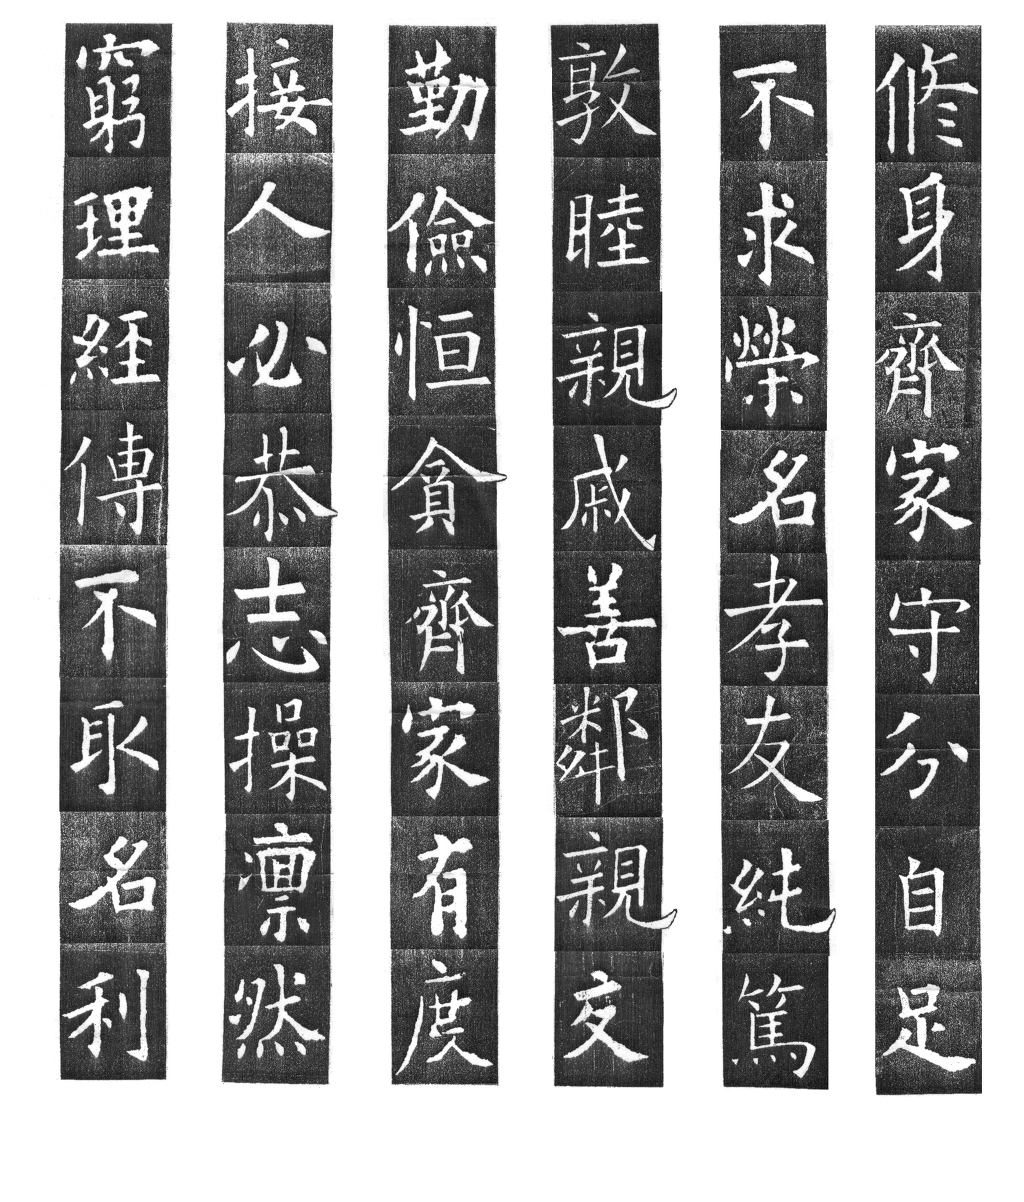 修身齊家守分自足
不求榮名孝友純篤
敦睦親戚善鄰親交
勤儉恒貪齊家有度
接人必恭志操凛然
窮理經傳不取名利